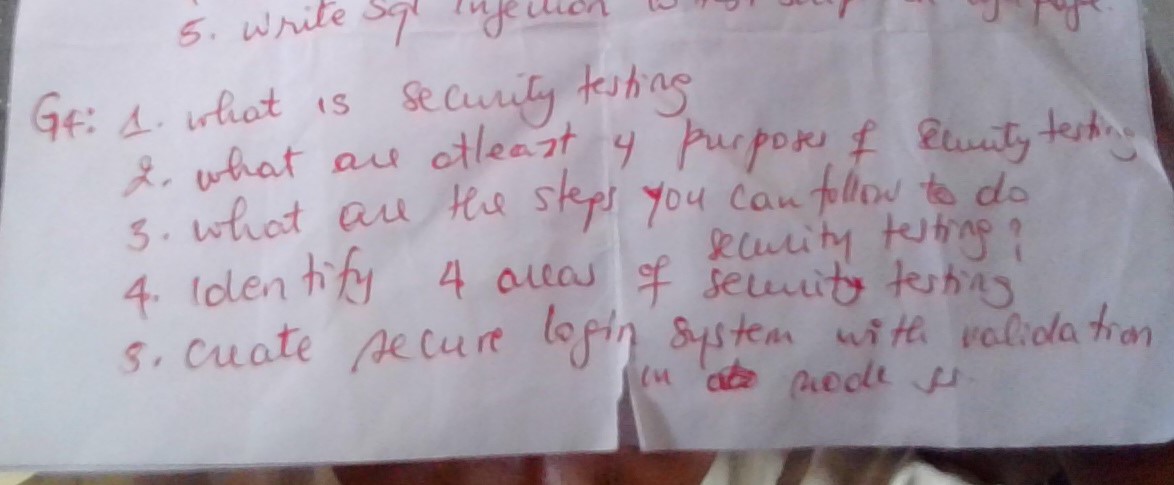 5. write Sql injection
G4: 1. what is security testing
2. what are atleast 4 purposes of Security testing
3. what are the steps you can follow to do
security testing?
4. Identify 4 areas of security testing
5. create secure login system with validation
in node js.